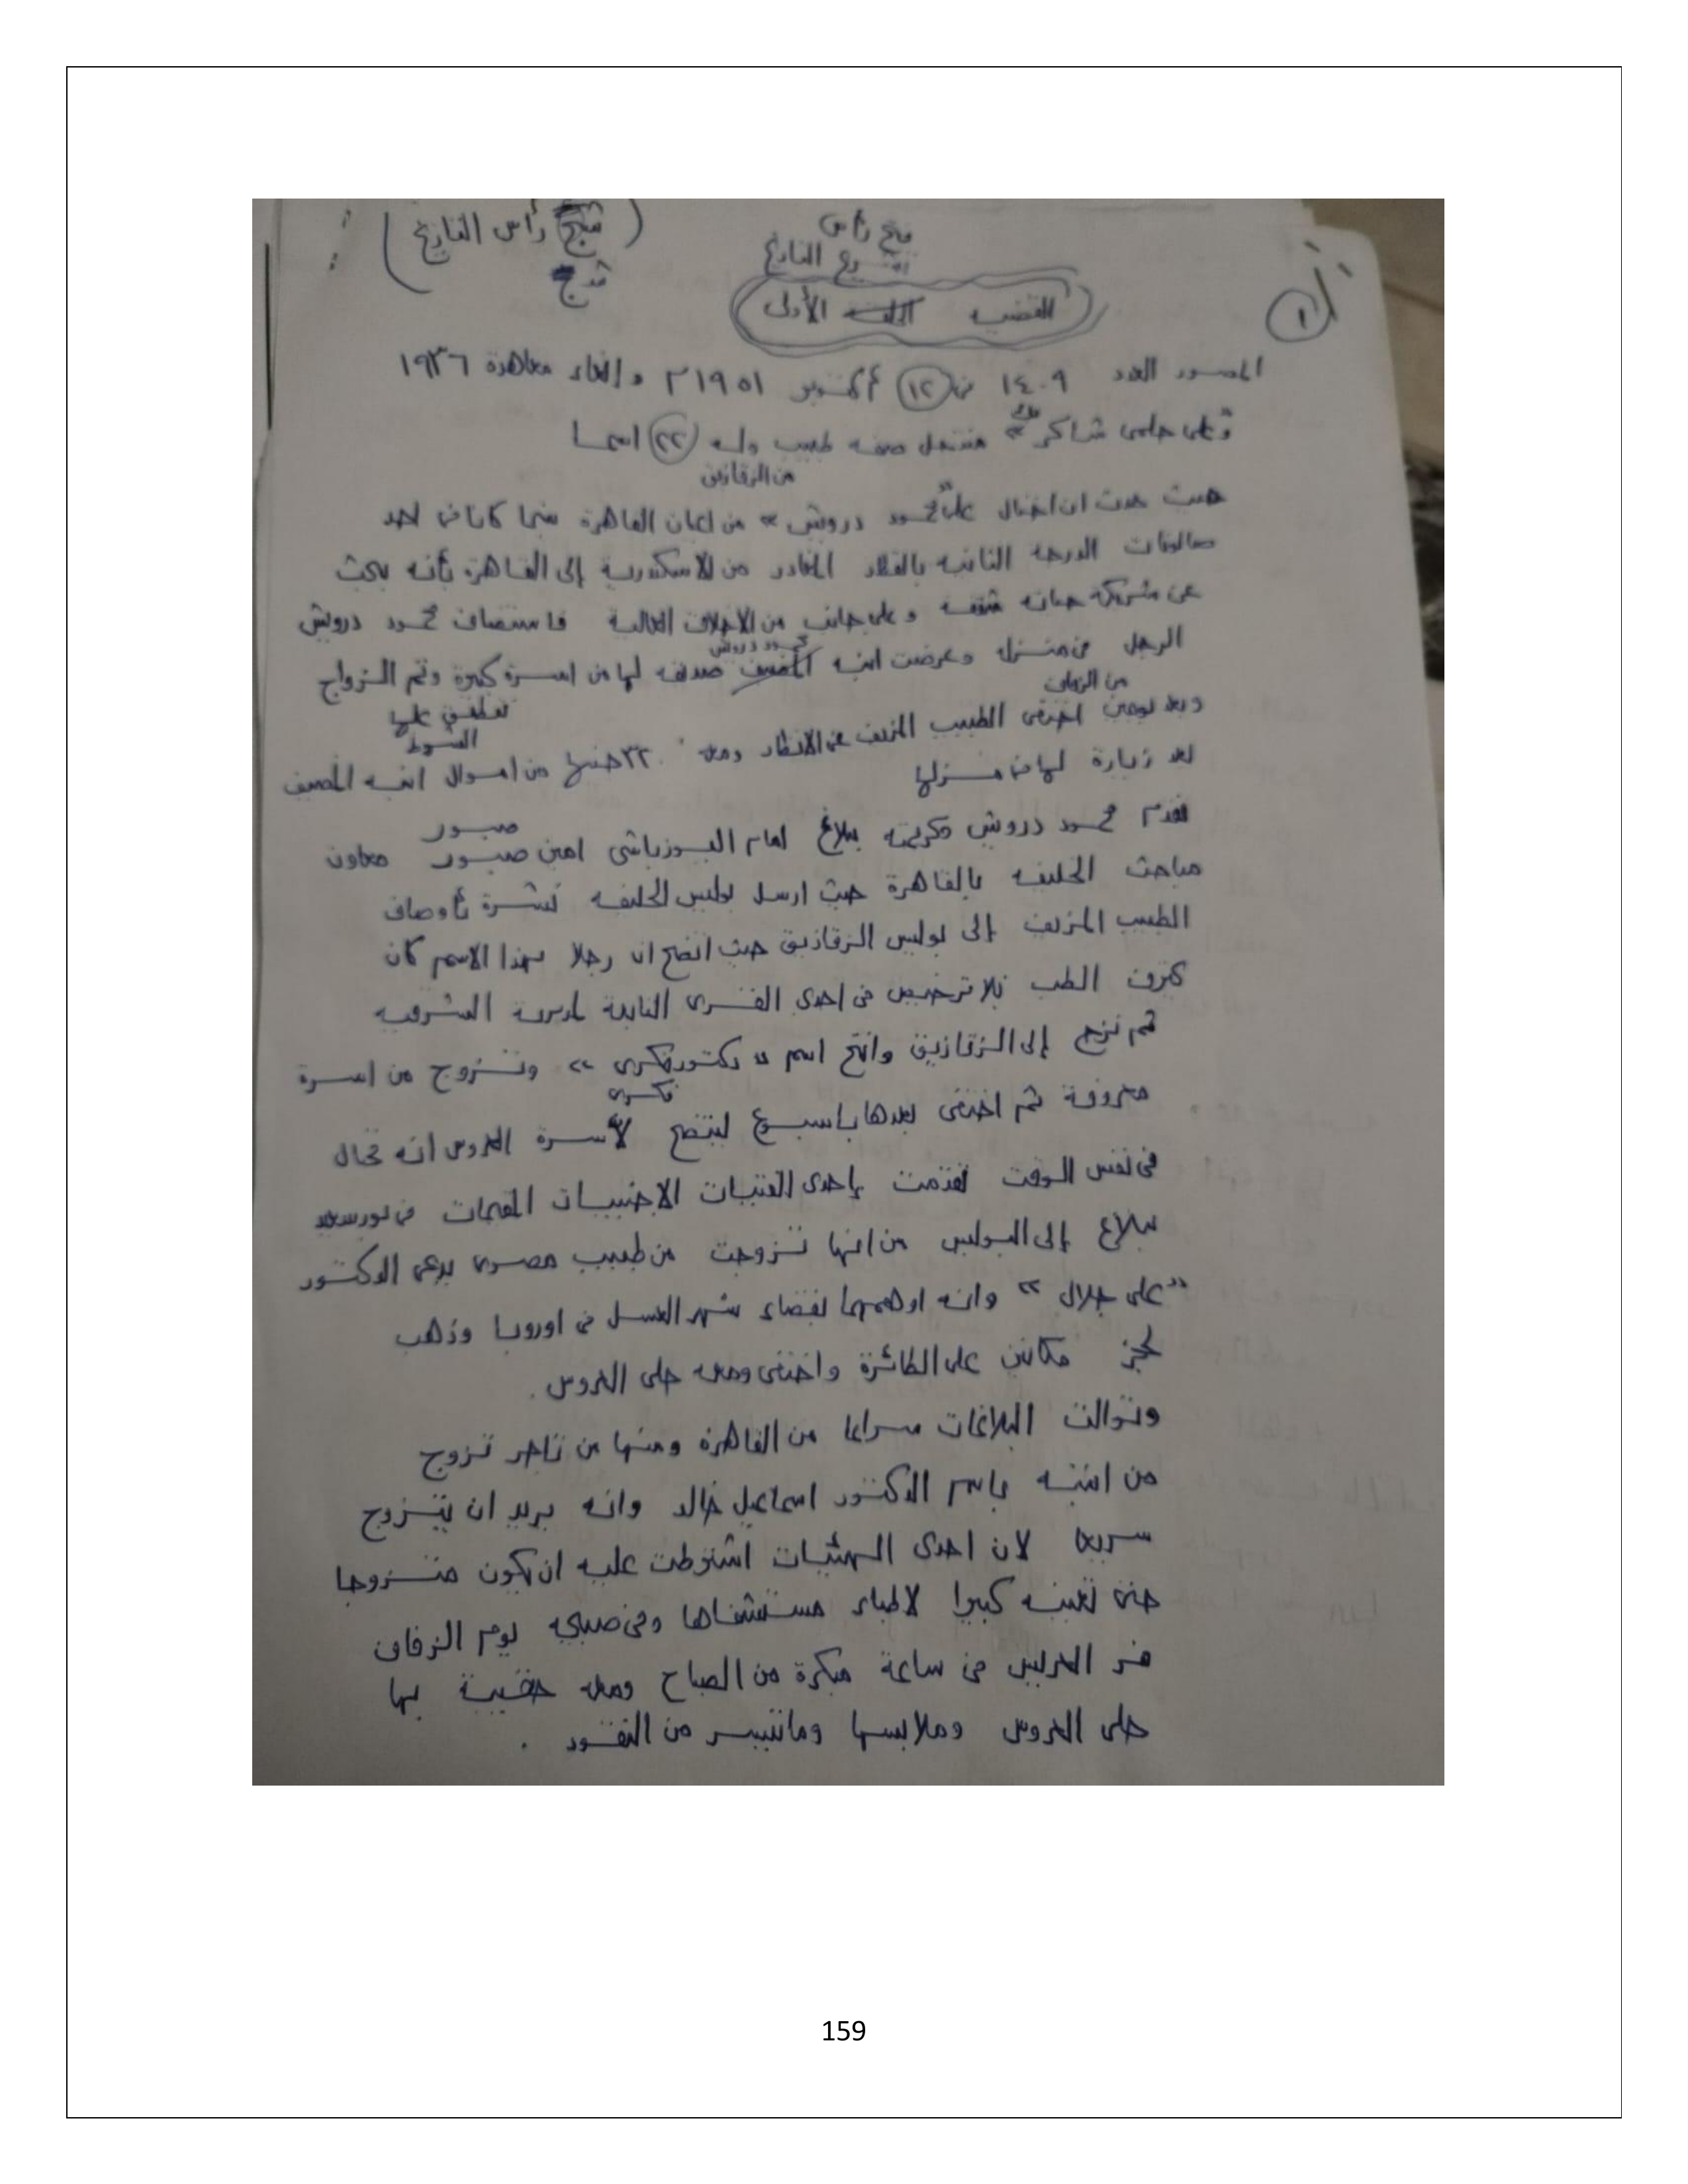 رأس التاريخ
رأس
التاريخ
القضيه الأولى
١
المصور العدد ١٤٠٩ في ١٢ أكتوبر ١٩٥١ م وإلغاء معاهدة ١٩٣٦
على حلمى شاكر منتحل صفه طبيب وله ٢٢ اسما
من الزقازيق
حيث حدث ان احتال على محمود درويش من اعيان القاهرة بينما كانا فى احد
صالونات الدرجه الثانيه بالقطار المغادر من الاسكندرية إلى القاهرة بأنه يبحث
عن شريكة حياته وعلى جانب من الاخلاق العالية فاستضاف محمود درويش
محمود درويش
الرجل فى منزله وعرضت ابنه المضيف صديقه لها من اسرة كبيرة وتم الزواج
من الزفاف
وبعد يومين اختفى الطبيب المزيف عن الانظار ومعه ٣٢٠ جنيها من اموال ابنه المضيف
بعد زيارة لها فى منزلها
تقدم محمود درويش وكريمته ببلاغ امام اليوزباشى امين صبور معاون
صبور
مباحث الخليفه بالقاهرة حيث ارسل بوليس الخليفه نشرة بأوصاف
الطبيب المزيف إلى بوليس الزقازيق حيث اتضح ان رجلا بهذا الاسم كان
يحترف الطب بلا ترخيص فى احدى القرى التابعة لمديرية الشرقيه
ثم نزح إلى الزقازيق وانتحل اسم " دكتور فكرى " وتزوج من اسرة
فكرى
معروفة ثم اختفى بعدها باسبوع ليتضح لأسرة العروس انه محتال
فى نفس الوقت تقدمت إحدى الفتيات الاجنبيات المقيمات فى بورسعيد
ببلاغ إلى البوليس من انها تزوجت من طبيب مصرى يدعى الدكتور
" على جلال " وانه اوهمها بقضاء شهر العسل فى اوروبا وذهب
لحجز مكانين على الطائرة واختفى ومعه حلى العروس .
وتوالت البلاغات سراعا من القاهرة ومنها من تاجر تزوج
من ابنته باسم الدكتور اسماعيل خالد وانه يريد ان يتزوج
سريعا لان احدى الهيئات اشترطت عليه ان يكون متزوجا
حتى تعينه كبيرا لاطباء مستشفاها وفى صبيحه يوم الزفاف
فر العريس فى ساعة مبكرة من الصباح ومعه حقيبة بها
حلى العروس وملابسها وما تيسر من النقود .
159